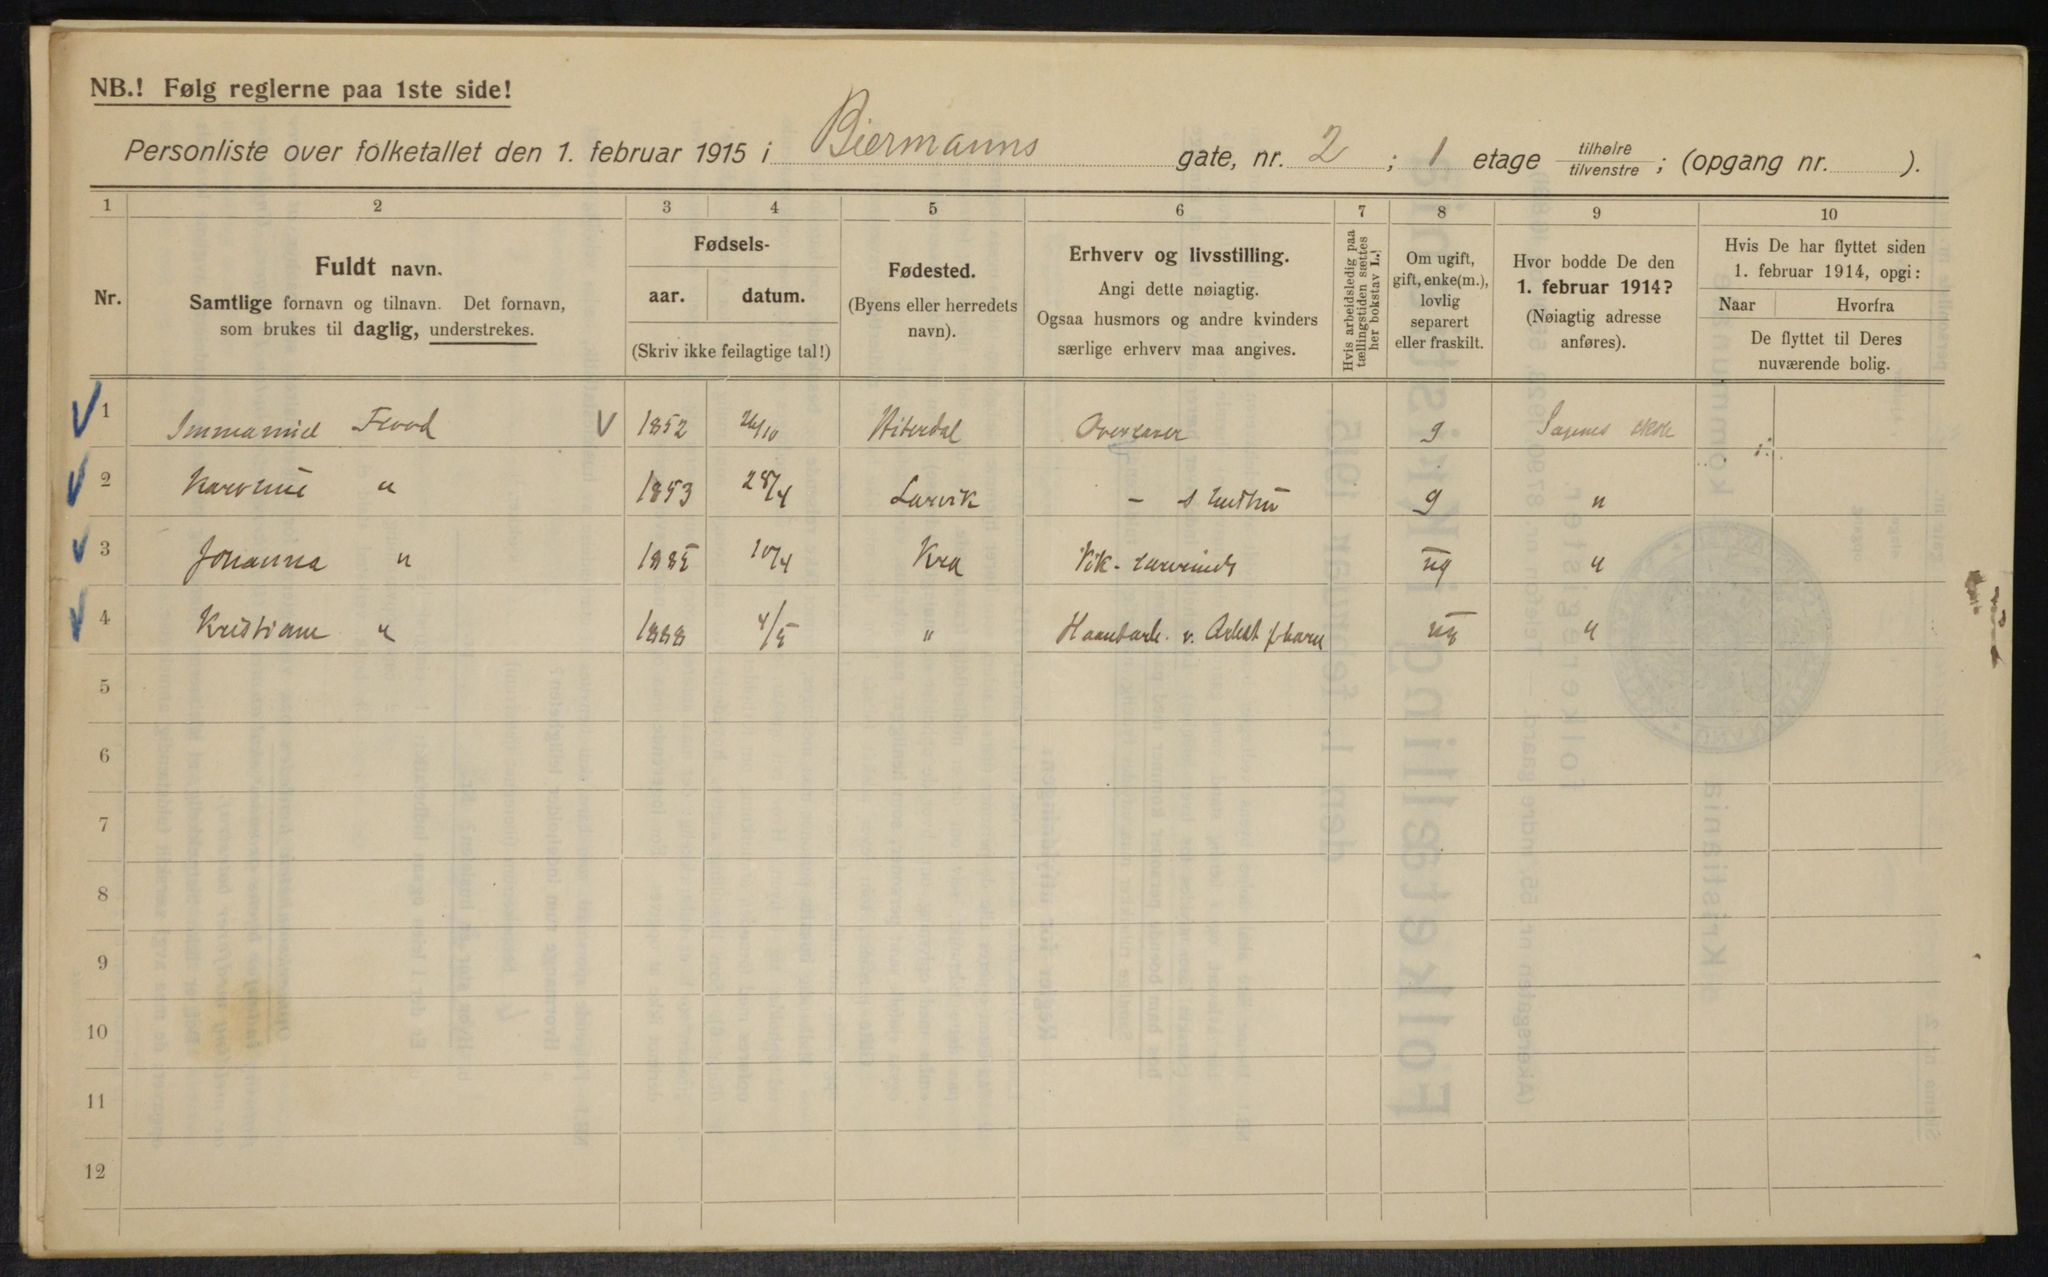 NB.! Følg reglerne paa 1ste side!
Personliste over folketallet den 1. februar 1915 i Biermanns gate, nr. 2 ; 1 etage tilhøire tilvenstre ; (opgang nr. ).
1 2 3 4 5 6 7 8 9 10
Nr.
Fuldt navn.
Samtlige fornavn og tilnavn. Det fornavn,
som brukes til daglig, understrekes.
Fødsels-
aar. datum.
(Skriv ikke feilagtige tal!)
Fødested.
(Byens eller herredets
navn).
Erhverv og livsstilling.
Angi dette nøiagtig.
Ogsaa husmors og andre kvinders
særlige erhverv maa angives.
Hvis arbeidsledig paa
tællingstiden sættes
her bokstav L.!
Om ugift,
gift, enke(m.),
lovlig
separert
eller fraskilt.
Hvor bodde De den
1. februar 1914?
(Nøiagtig adresse
anføres).
Hvis De har flyttet siden
1. februar 1914, opgi:
Naar Hvorfra
De flyttet til Deres
nuværende bolig.
1 Immanuel Flood 1852 26/10 Hiterdal Overlærer g Sagenes skole
2 Karoline " 1853 28/4 Larvik - s hustru g "
3 Johanna " 1885 10/4 Kra Vik- lærerinde ug "
4 Kristiane " 1888 4/5 " Haandarb. v. ug "
5
6
7
8
9
10
11
12